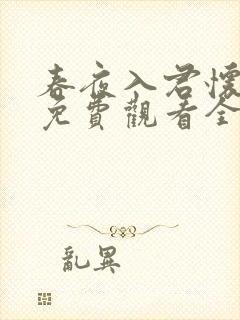 春夜入君懷
免費觀看全
亂異